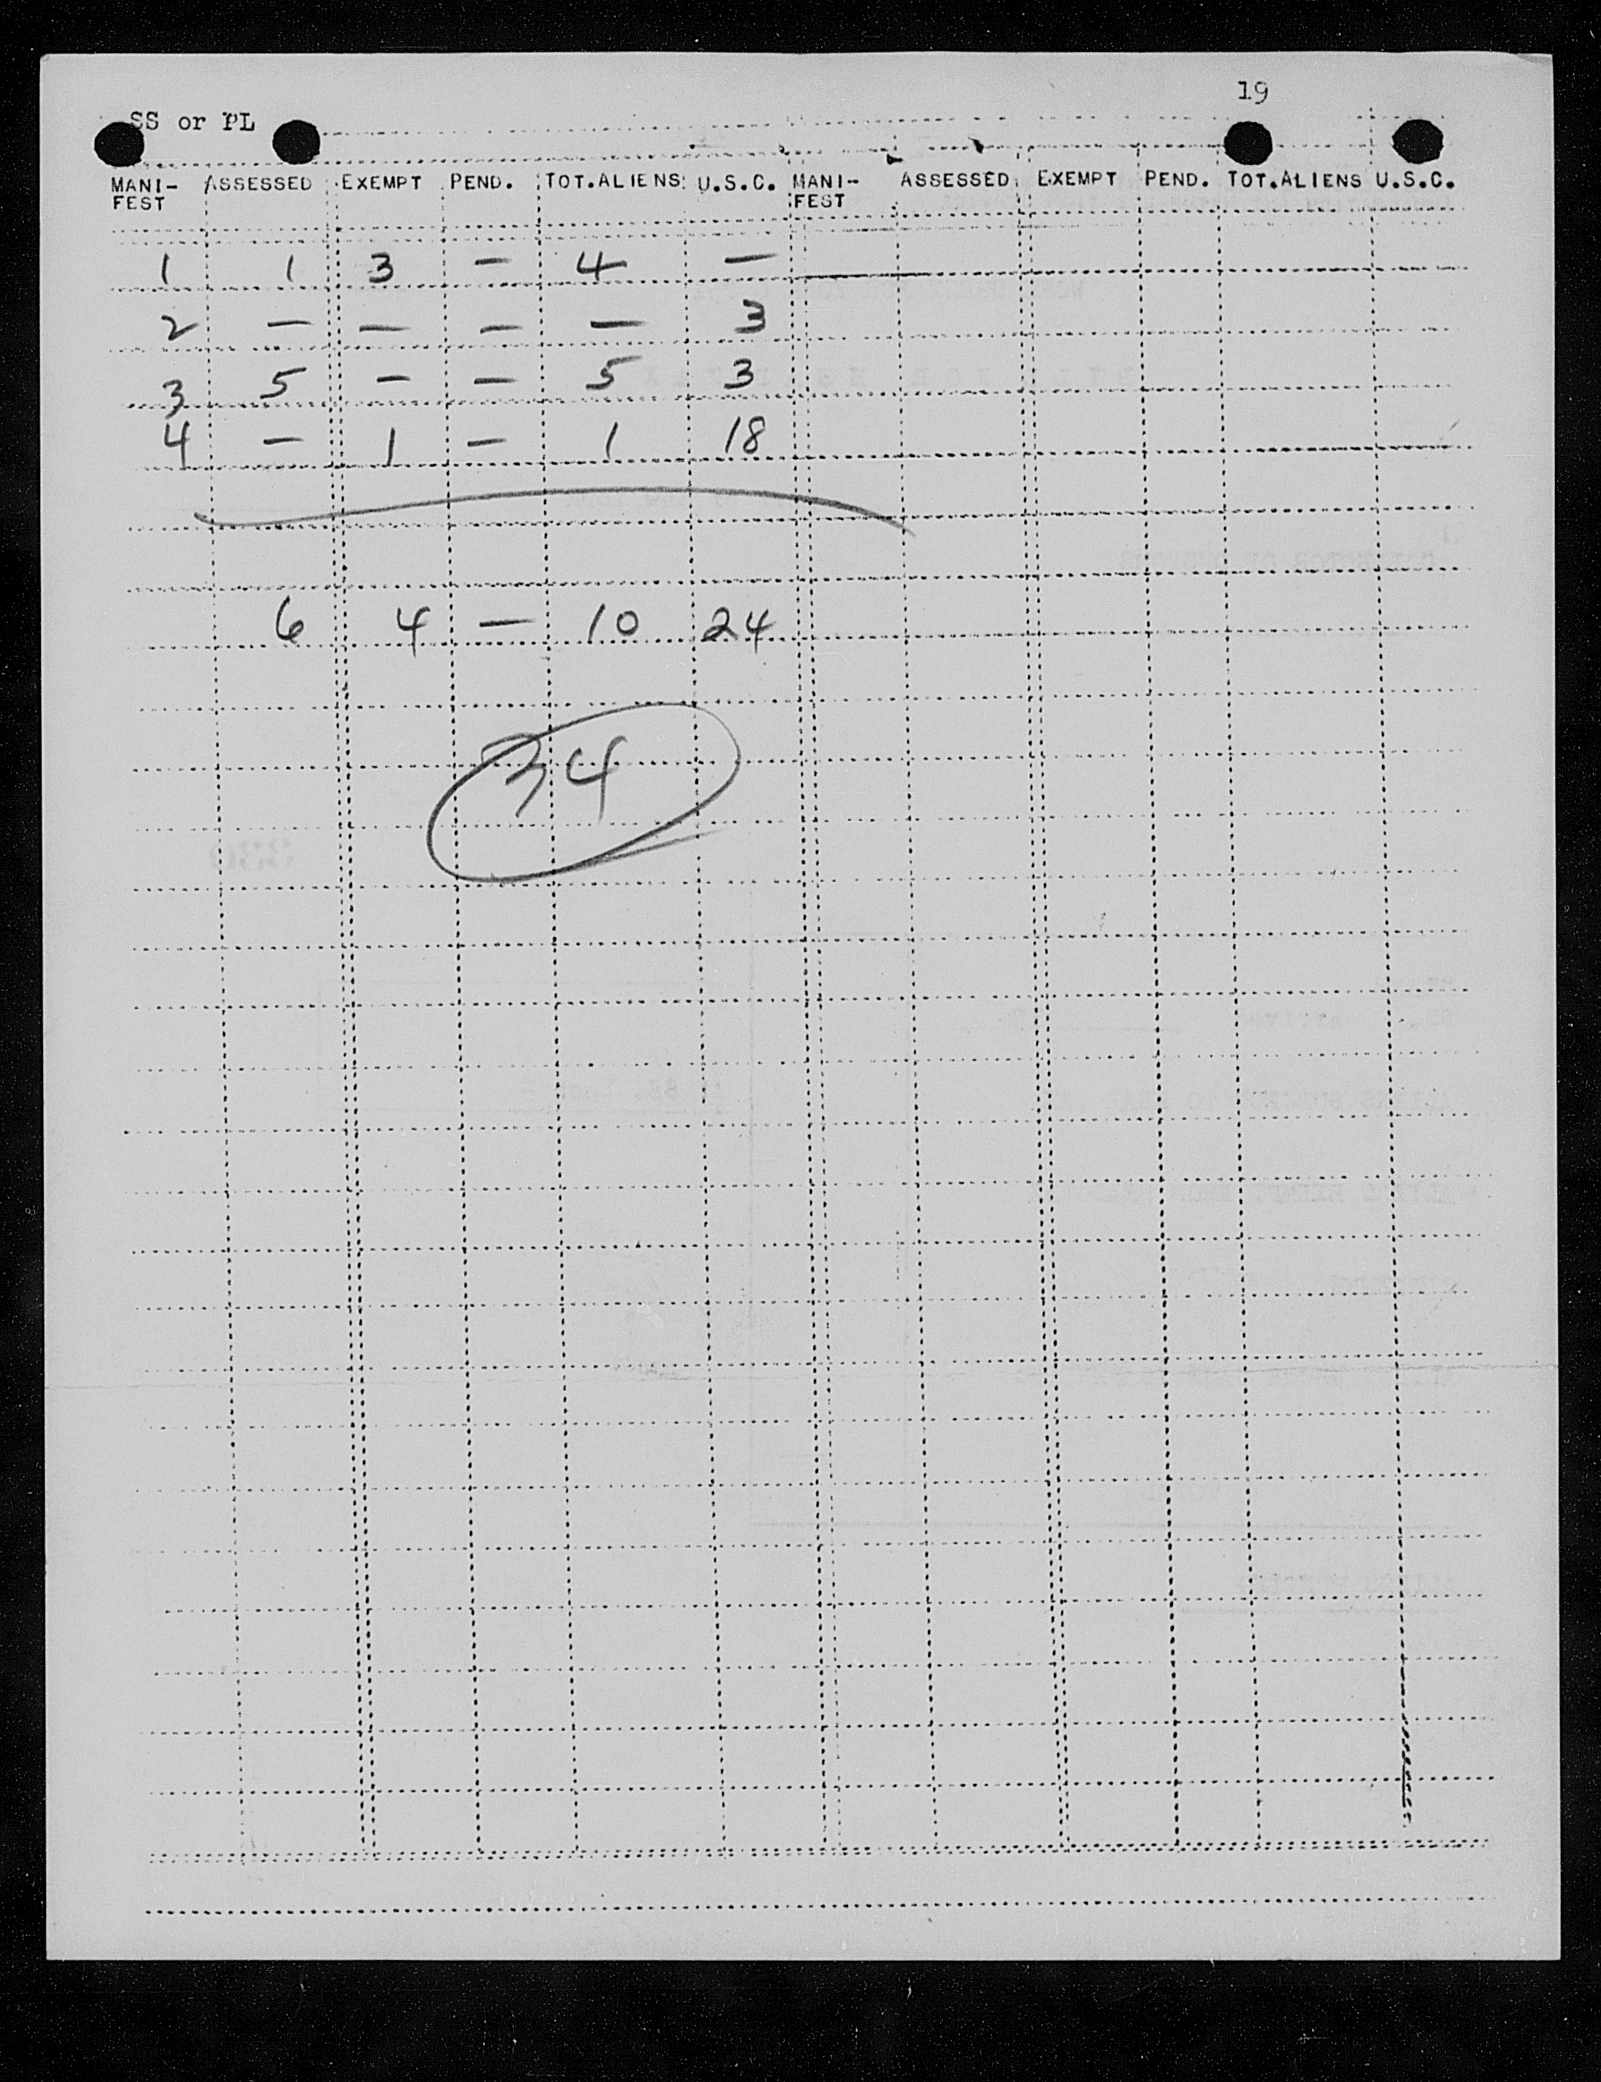 19
SS or PL
MANI- ASSESSED EXEMPT PEND. TOT.ALIENS U.S.C. MANI- ASSESSED EXEMPT PEND. TOT.ALIENS U.S.C.
FEST FEST
1 1 3 — 4 —
2 — — — — 3
3 5 — — 5 3
4 — 1 — 1 18
6 4 — 10 24
34